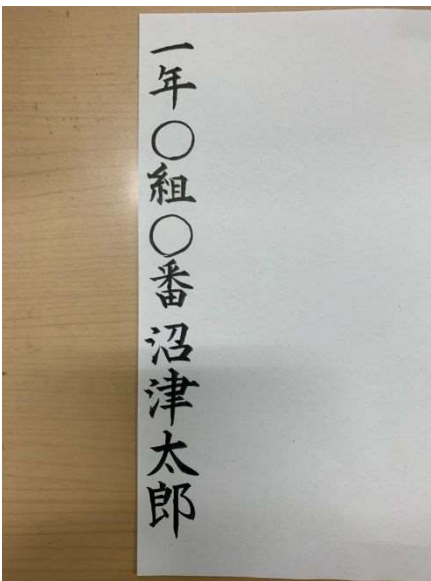 一年〇組〇番 沼津太郎